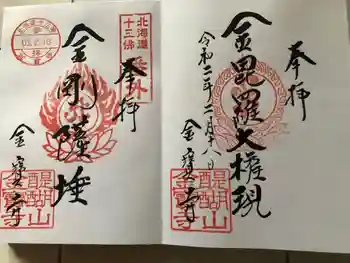 奉拝
金毘羅大権現
令和二年二月十八日
金寶寺
是明山
醍醐
金寶寺
北海道
十三佛
番外
奉拝
金剛薩埵
金寶寺
是明山
醍醐
金寶寺